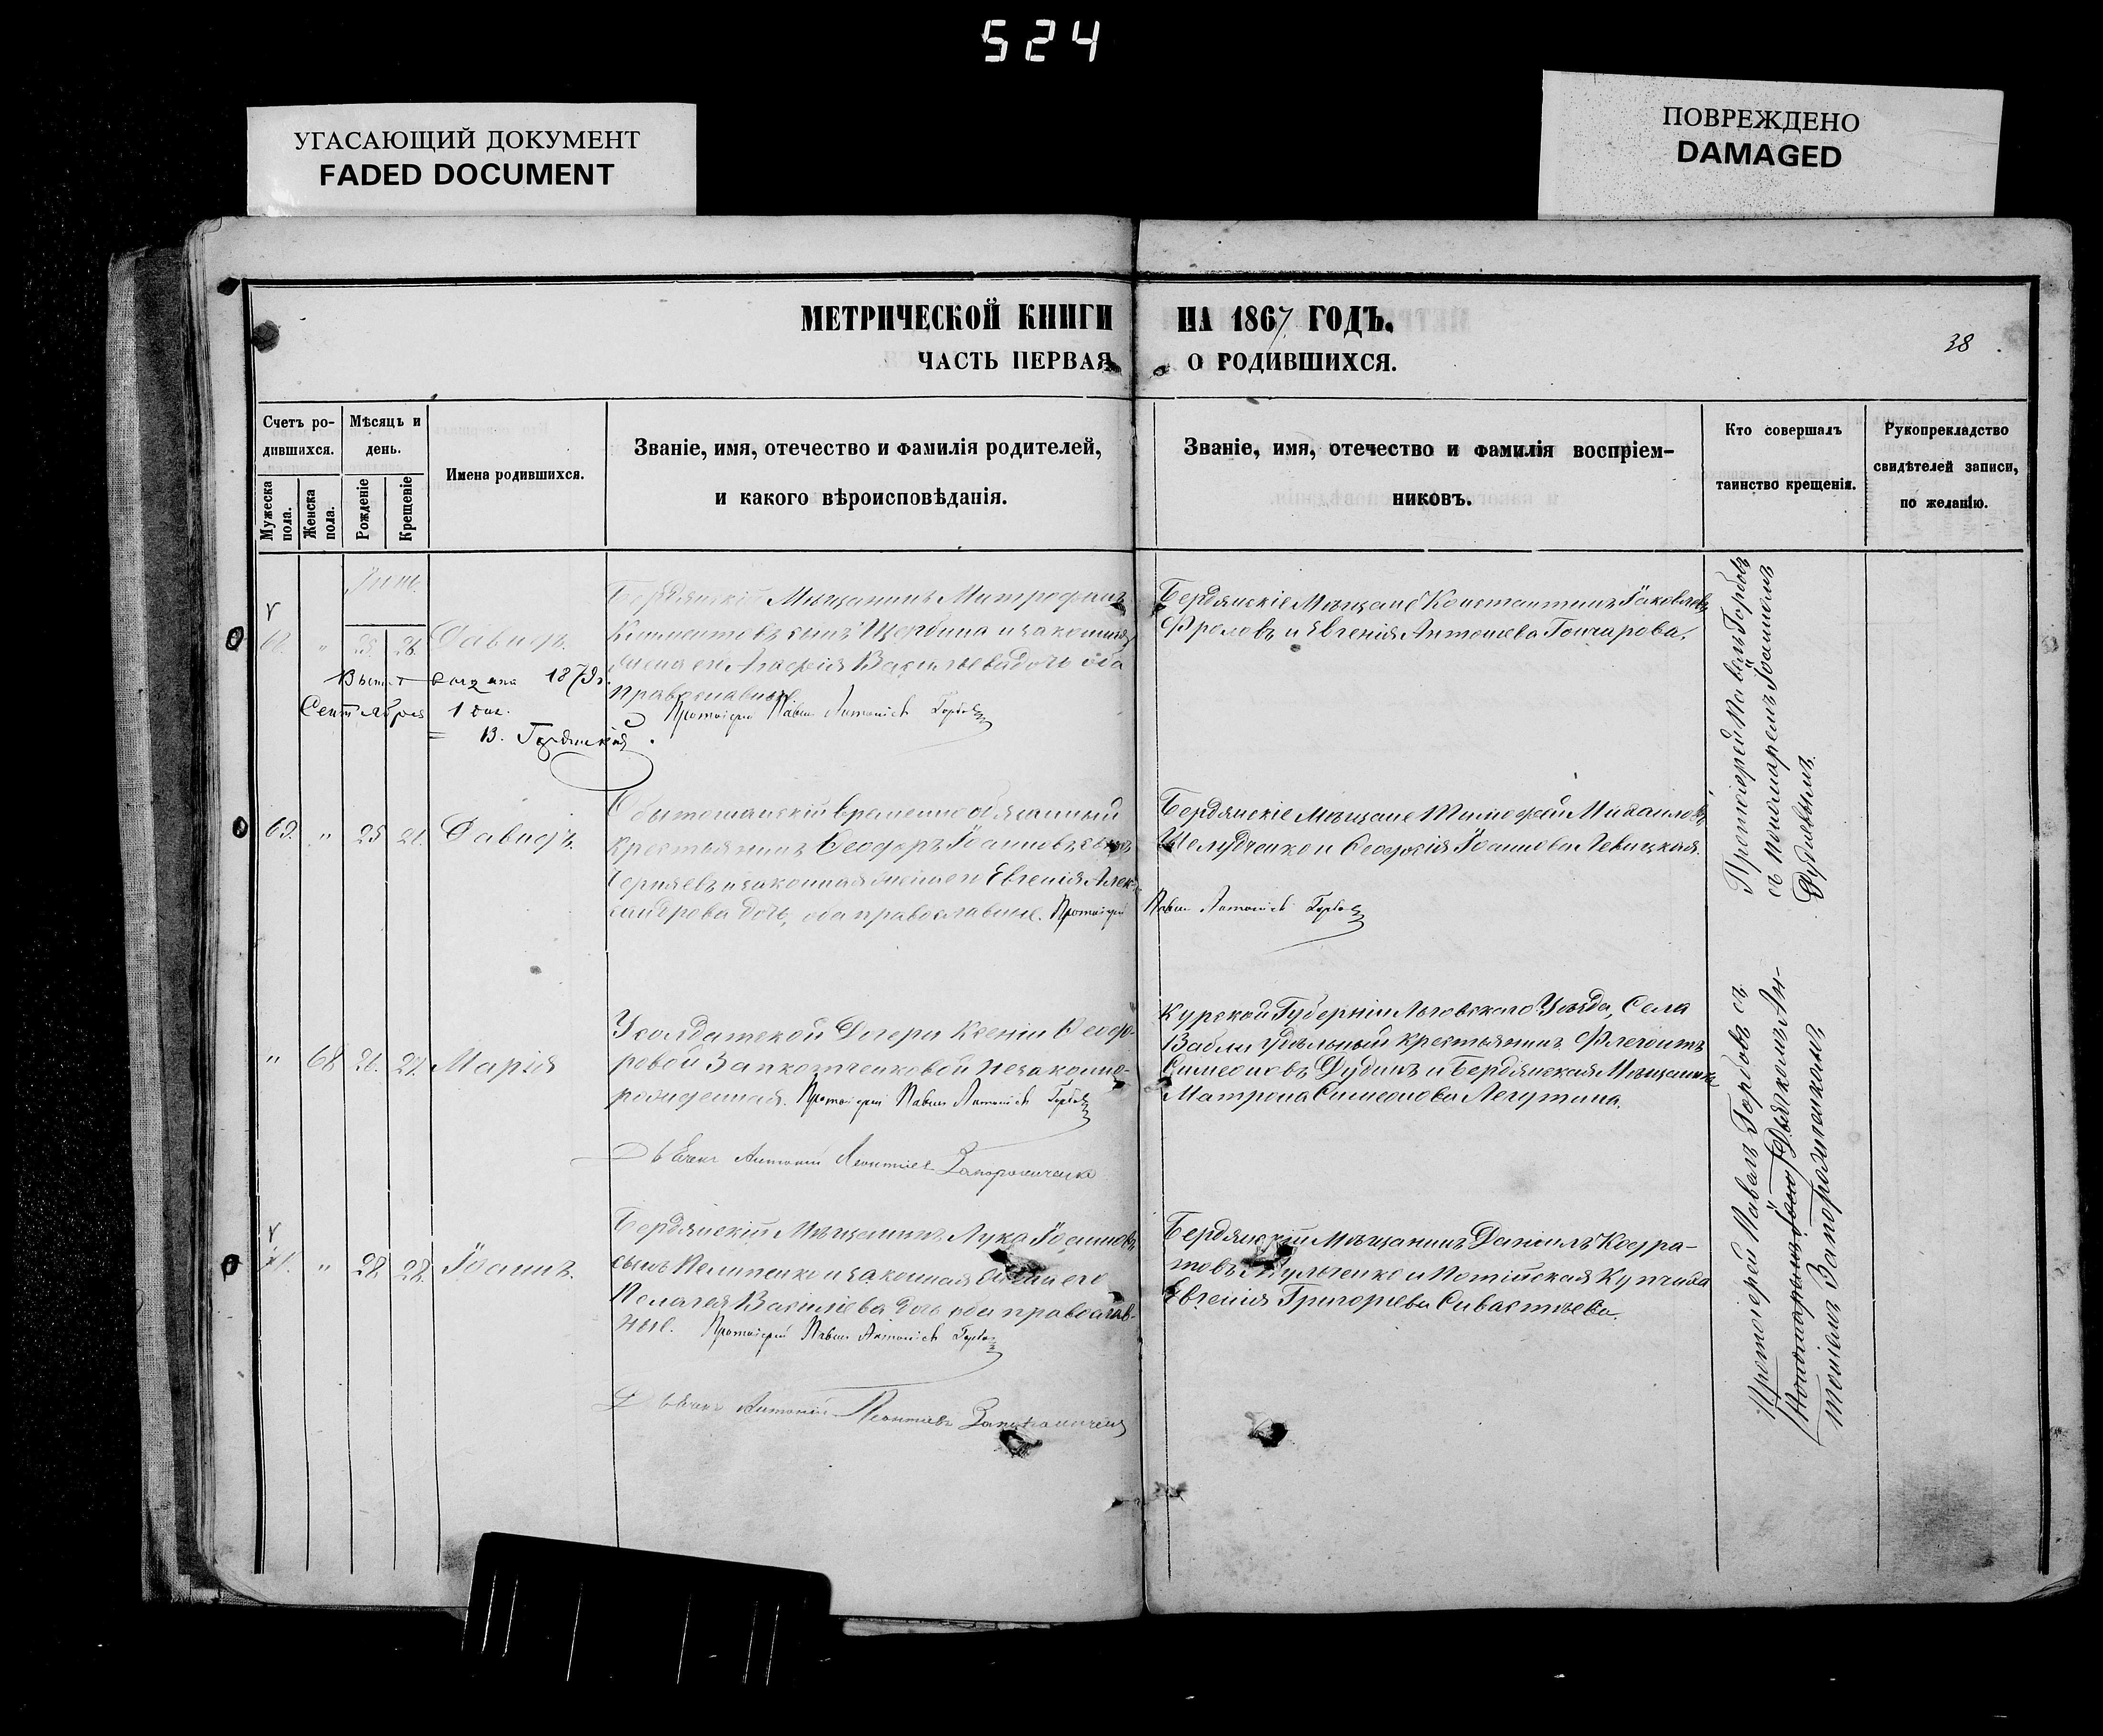 524
УГАСАЮЩИЙ ДОКУМЕНТ
FADED DOCUMENT
ПОВРЕЖДЕНО
DAMAGED
МЕТРИЧЕСКОЙ КНИГИ НА 1867 ГОДЪ.
ЧАСТЬ ПЕРВАЯ О РОДИВШИХСЯ.
38
Счетъ ро-
дившихся.
Мужеска
пола.
Женска
пола.
Мѣсяцъ и
день.
Рожденіе
Крещеніе
Имена родившихся.
Званіе, имя, отечество и фамилія родителей,
и какого вѣроисповѣданія.
Званіе, имя, отечество и фамилія воспріем-
никовъ.
Кто совершалъ
таинство крещенія.
Рукоприкладство
свидѣтелей записи,
по желанію.
" 25. 26. Давидъ.
1873 г.
Сентября 1 дня.
Бердянскій Мѣщанинъ Митрофанъ
Климентовъ сынъ Щербина и законная
жена его Агафія Васильева дочь оба
православные
Протоіерей Павелъ Антоніевъ Горбовъ
Бердянскіе Мѣщане Константинъ Іаковлевъ
Фроловъ и Евгенія Антонiева Гончарова.
Протоіерей Павелъ Горбовъ
съ пономаремъ Іоанномъ
69. " 25 26. Давидъ.
временно обязанный
крестьянинъ Ѳеодоръ Іоанновъ сынъ
и законная жена его Евгенія Алек-
сандрова дочь, оба православные. Протоіерей
Павелъ Антоніевъ Горбовъ
Бердянскіе мѣщане Тимофей Михаиловъ
Шелудченко и Іоаннова Левицкая.
" 68 26. 27. Марія
У солдатской Дочери Ксеніи Ѳеодо-
ровой незаконно-
рожденная. Протоіерей Павелъ Антоніевъ Горбовъ
Дьячекъ Антоній Леонтіевъ
Курской Губерніи Льговскаго Уѣзда, Села
Вабли Удѣльный крестьянинъ Флегонтъ
Симеоновъ Дудинъ и Бердянская Мѣщанка
Матрона Симеонова Легутина.
Протоіерей Павелъ Горбовъ съ
Дьячкомъ Ан-
тоніемъ
" 28 28. Іоаннъ.
Бердянскій Мѣщанинъ Лука Іоанновъ
сынъ Пелипенко и законная жена его
Пелагея Васильева дочь оба православ-
ные. Протоіерей Павелъ Антоніевъ Горбовъ
Дьячекъ Антоній Леонтіевъ
Бердянскій мѣщанинъ Даніилъ Кодра-
товъ и Купчиха
Евгенія Григорьева Сивастьева.